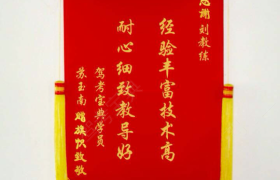 感谢刘教练
经验丰富技术高
耐心细致教导好
驾考宝典学员
苏玉南 赠旗致敬